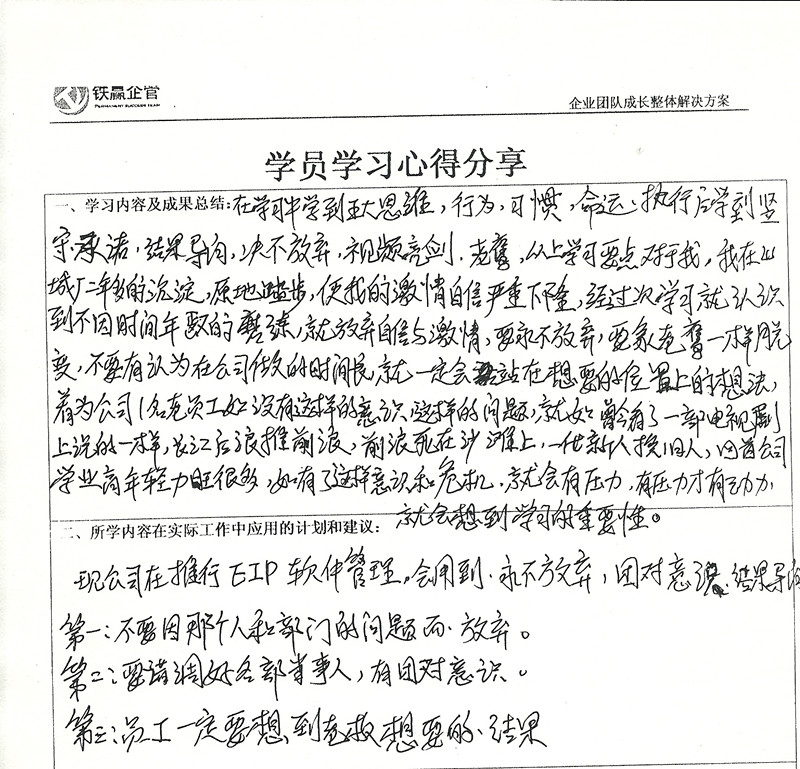 铁赢企管
PERMANENT SUCCESS TEAM
企业团队成长整体解决方案
学员学习心得分享
一、学习内容及成果总结:在学习中学到五大思维,行为,习惯,命运、执行后学到坚
守承诺,结果导向,决不放弃,视频亮剑.老鹰,从上学习要点对于我,我在山
城厂二年多的沉淀,原地踏步,使我的激情自信严重下降,经过次学习就认识
到不因时间年数的磨练,就放弃自信与激情,要永不放弃,要象老鹰一样脱
变,不要有认为在公司做久的时间长,就一定会站在想要的位置上的想法,
若为公司1名老员工如没有这样的意识.这样的问题,就如曾今看了一部电视剧
上说的一样,长江后浪推前浪,前浪死在沙滩上,一代新人换旧人,公司
学业高年轻力旺很多,如有了这样意识和危机,就会有压力,有压力才有动力
就会想到学习的重要性。
二、所学内容在实际工作中应用的计划和建议:
现公司在推行EIP软件管理。会用到.永不放弃,团对意识.结果导向
第一:不要因那个人和部门的问题而放弃。
第二:要调好各部事人,有团对意识。
第三:员工一定要想到想要的结果